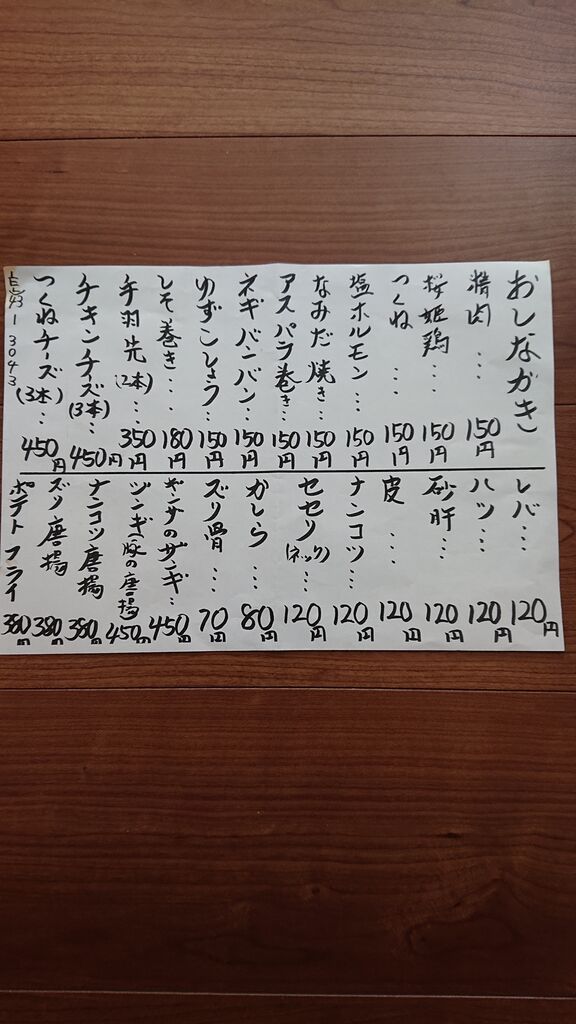 おしながき
精肉 … 150円
桜姫鶏 … 150円
つくね … 150円
塩ホルモン … 150円
なみだ焼き … 150円
アスパラ巻き … 150円
ネギバンバン … 150円
ゆずこしょう … 150円
しそ巻き … 180円
手羽先(2本) … 350円
チキンチーズ(3本) … 450円
つくねチーズ(3本) 450円
レバ … 120円
ハツ … 120円
砂肝 … 120円
皮 … 120円
ナンコツ … 120円
セセリ(ネック) … 120円
かしら … 80円
ズリ骨 … 70円
ギンナのザンギ … 450円
ヅンギ(豚の唐揚 450円
ナンコツ唐揚 380円
ズリ唐揚 380円
ポテトフライ 380円
1 3043